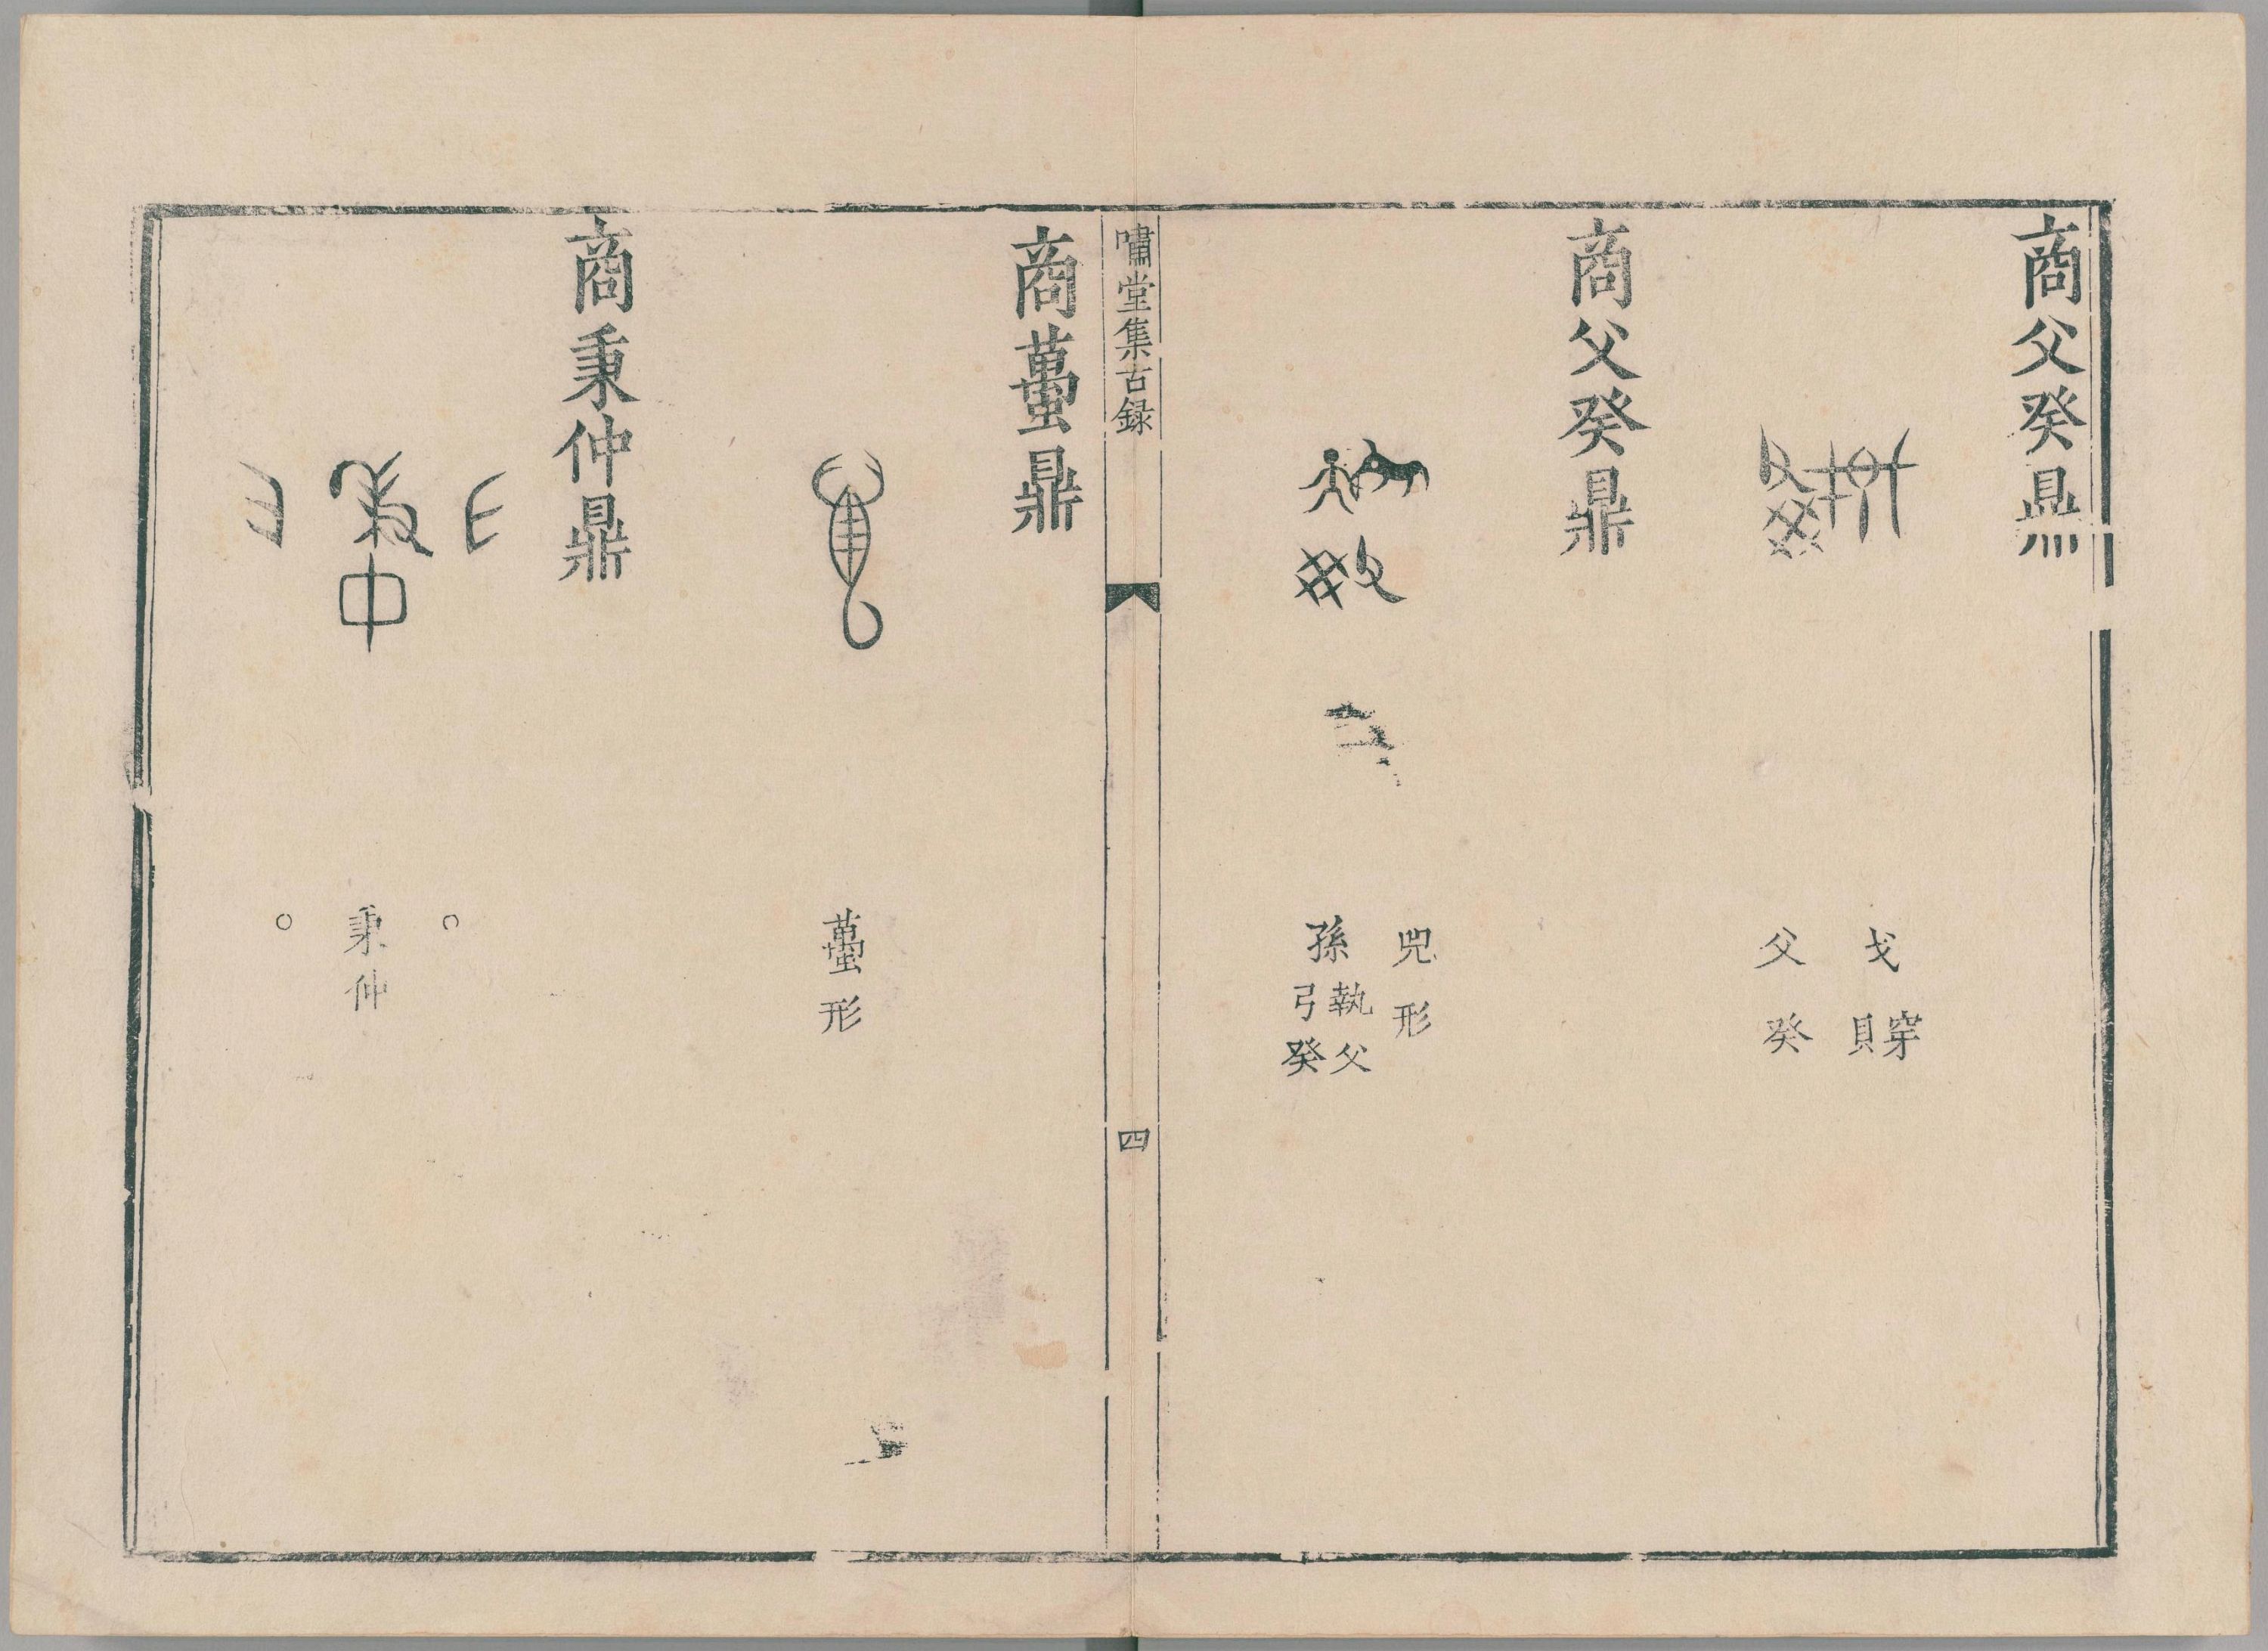 商父癸鼎
戈穿貝
父癸
商父癸鼎
兕形
孫執弓父癸
嘯堂集古録
四
商蠆鼎
蠆形
商秉仲鼎
○
秉仲
○